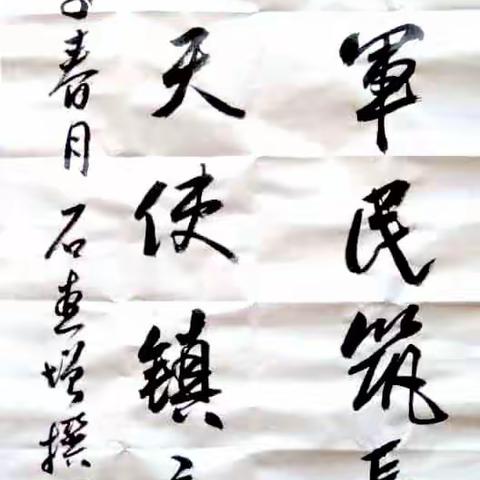 軍民筑
天使鎮
春月石惠增撰